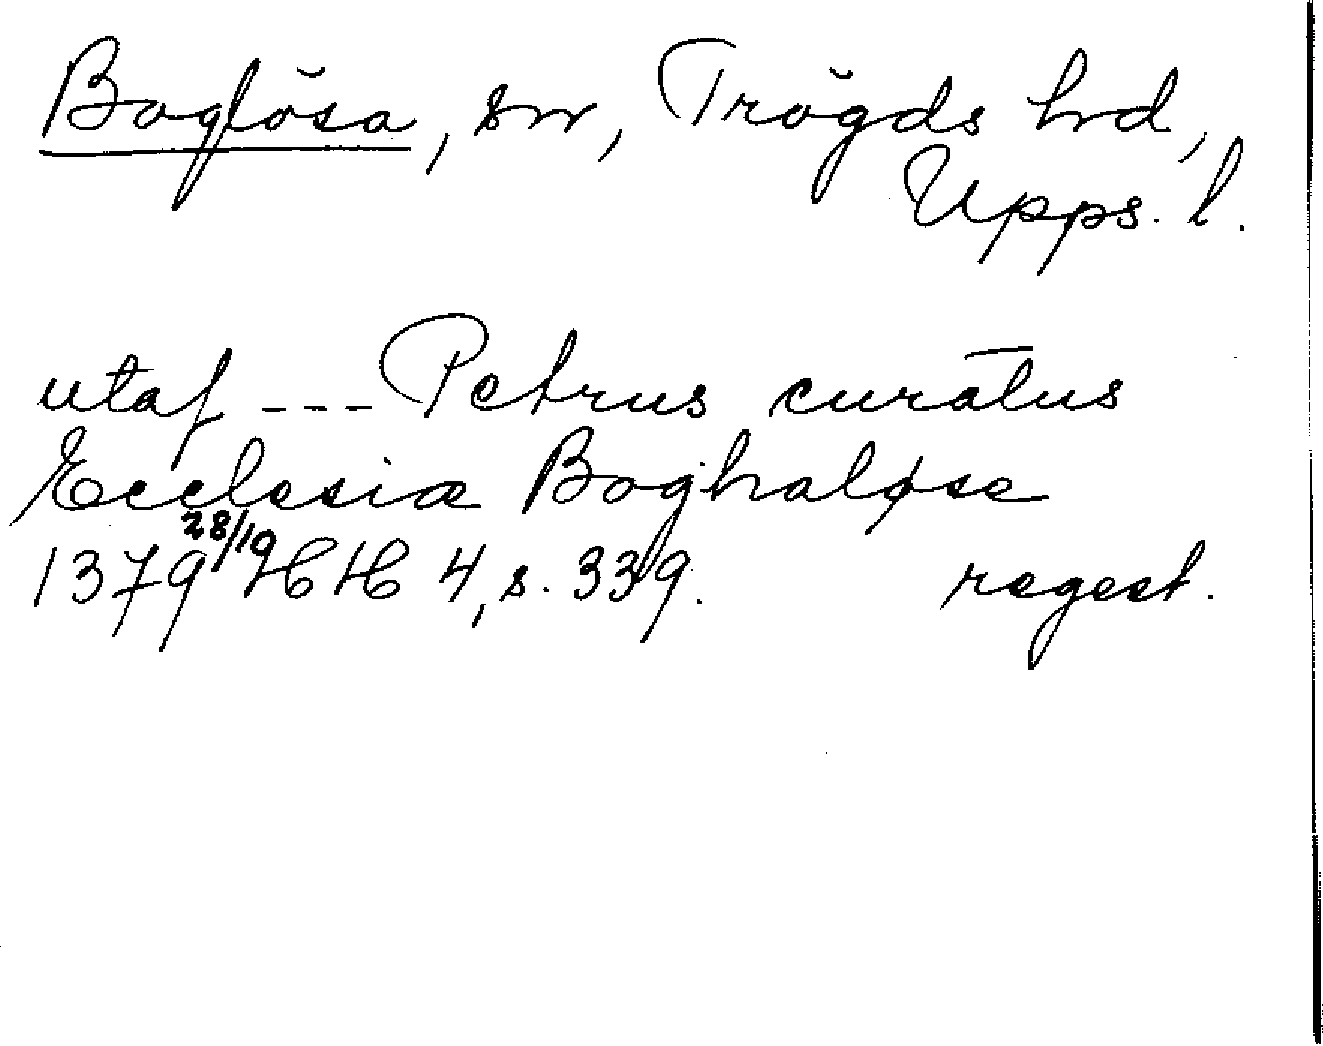 Boglösa, sn, Trögds hrd,
Upps. l.
utaf --- Petrus curatus
Ecclesiæ Boghaløse
1379 28/10 HH 4, s. 339. regest.